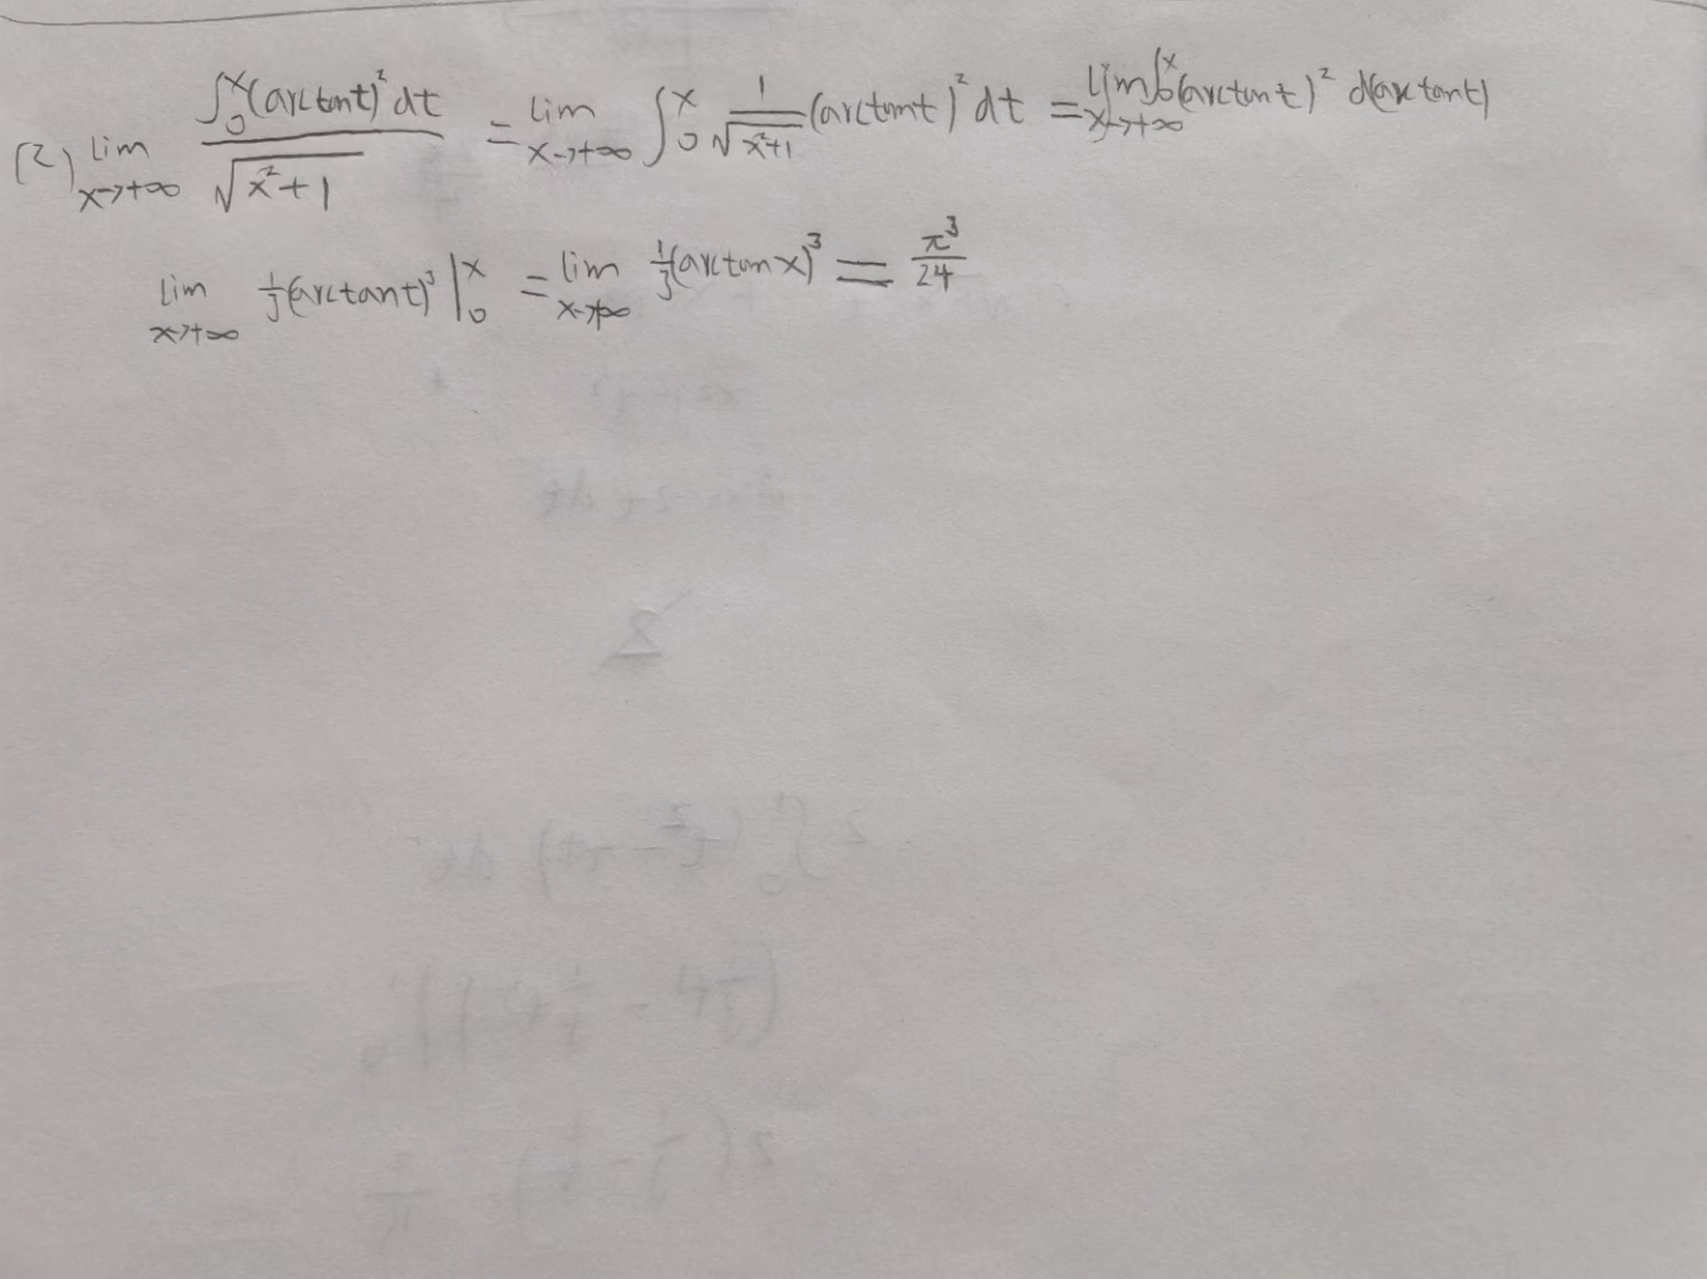 (2) lim x→+∞ ∫₀ˣ(arctant)²dt / √(x²+1) = lim x→+∞ ∫₀ˣ 1/√(x²+1) (arctant)²dt = lim x→+∞ ∫₀ˣ(arctant)² d(arctant)
lim x→+∞ 1/3(arctant)³|₀ˣ = lim x→+∞ 1/3(arctanx)³ = π³/24